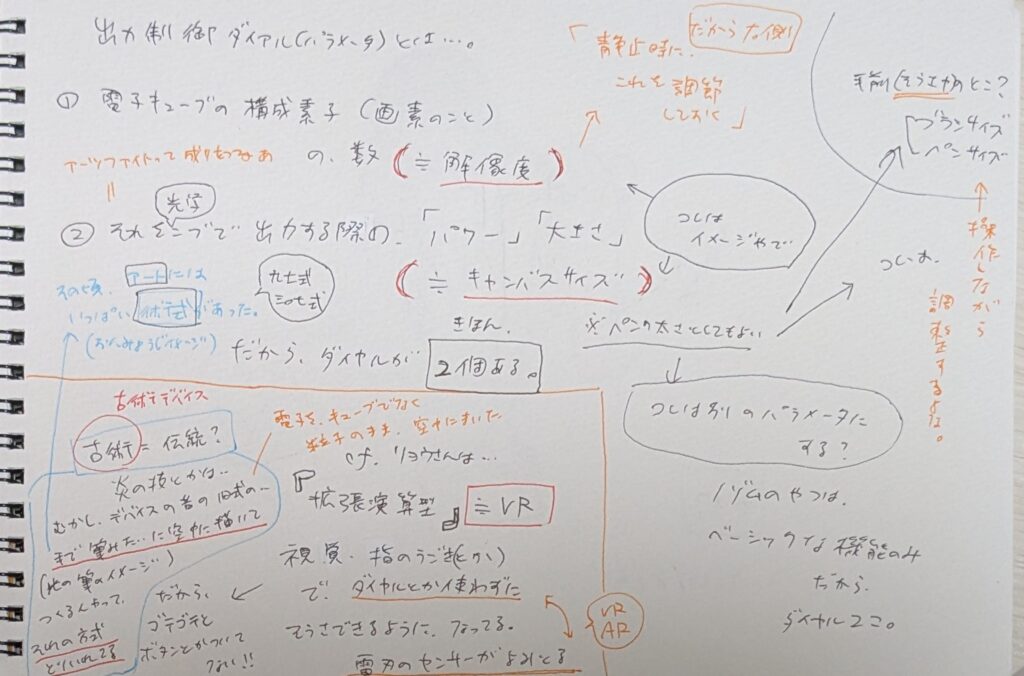 出力制御ダイアル(パラメータ)とは…。
「静止時に、
だから左側
これを調節
しておく」
① 電子キューブの構成素子(画素のこと)
の、数(≒解像度)
アーツファイトって成り立つなぁ
||
光学
② それをこづで出力する際の、「パワー」「大きさ」
(≒キャンバスサイズ)
九七式
三〇七式
ついは
イメージやで
手前(そうさ中)のとこ?
ブラシサイズ
ペンサイズ
操作しながら
調整するよな。
ついは、
※ペンの太さとしてもよい
その頃、アートには
いっぱい 式があった。
きほん、
だから、ダイヤルが 2個ある。
ついは別のパラメータに
する?
ノゾムのやつは、
ベーシックな機能のみ
だから、
ダイヤル2こ。
古術デバイス
古術=伝統?
炎の技とかは…
むかし、デバイスの昔の旧式の…
まで筆みた…に空中に描いて
(化の筆のイメージ)
つくるんやって、
それの方式
とりいれてる
だから、
ゴテゴテと
ボタンとかついて
ない!!
電子を、キューブでなく
粒子のまま、空中にまいた
cf. リョウさんは…
『拡張演算型』≒VR
視覚、指のうごき(とか)
で、ダイヤルとか使わずに
そうさできるように、なってる。
雷刃のセンサーがよみとる
VR
AR